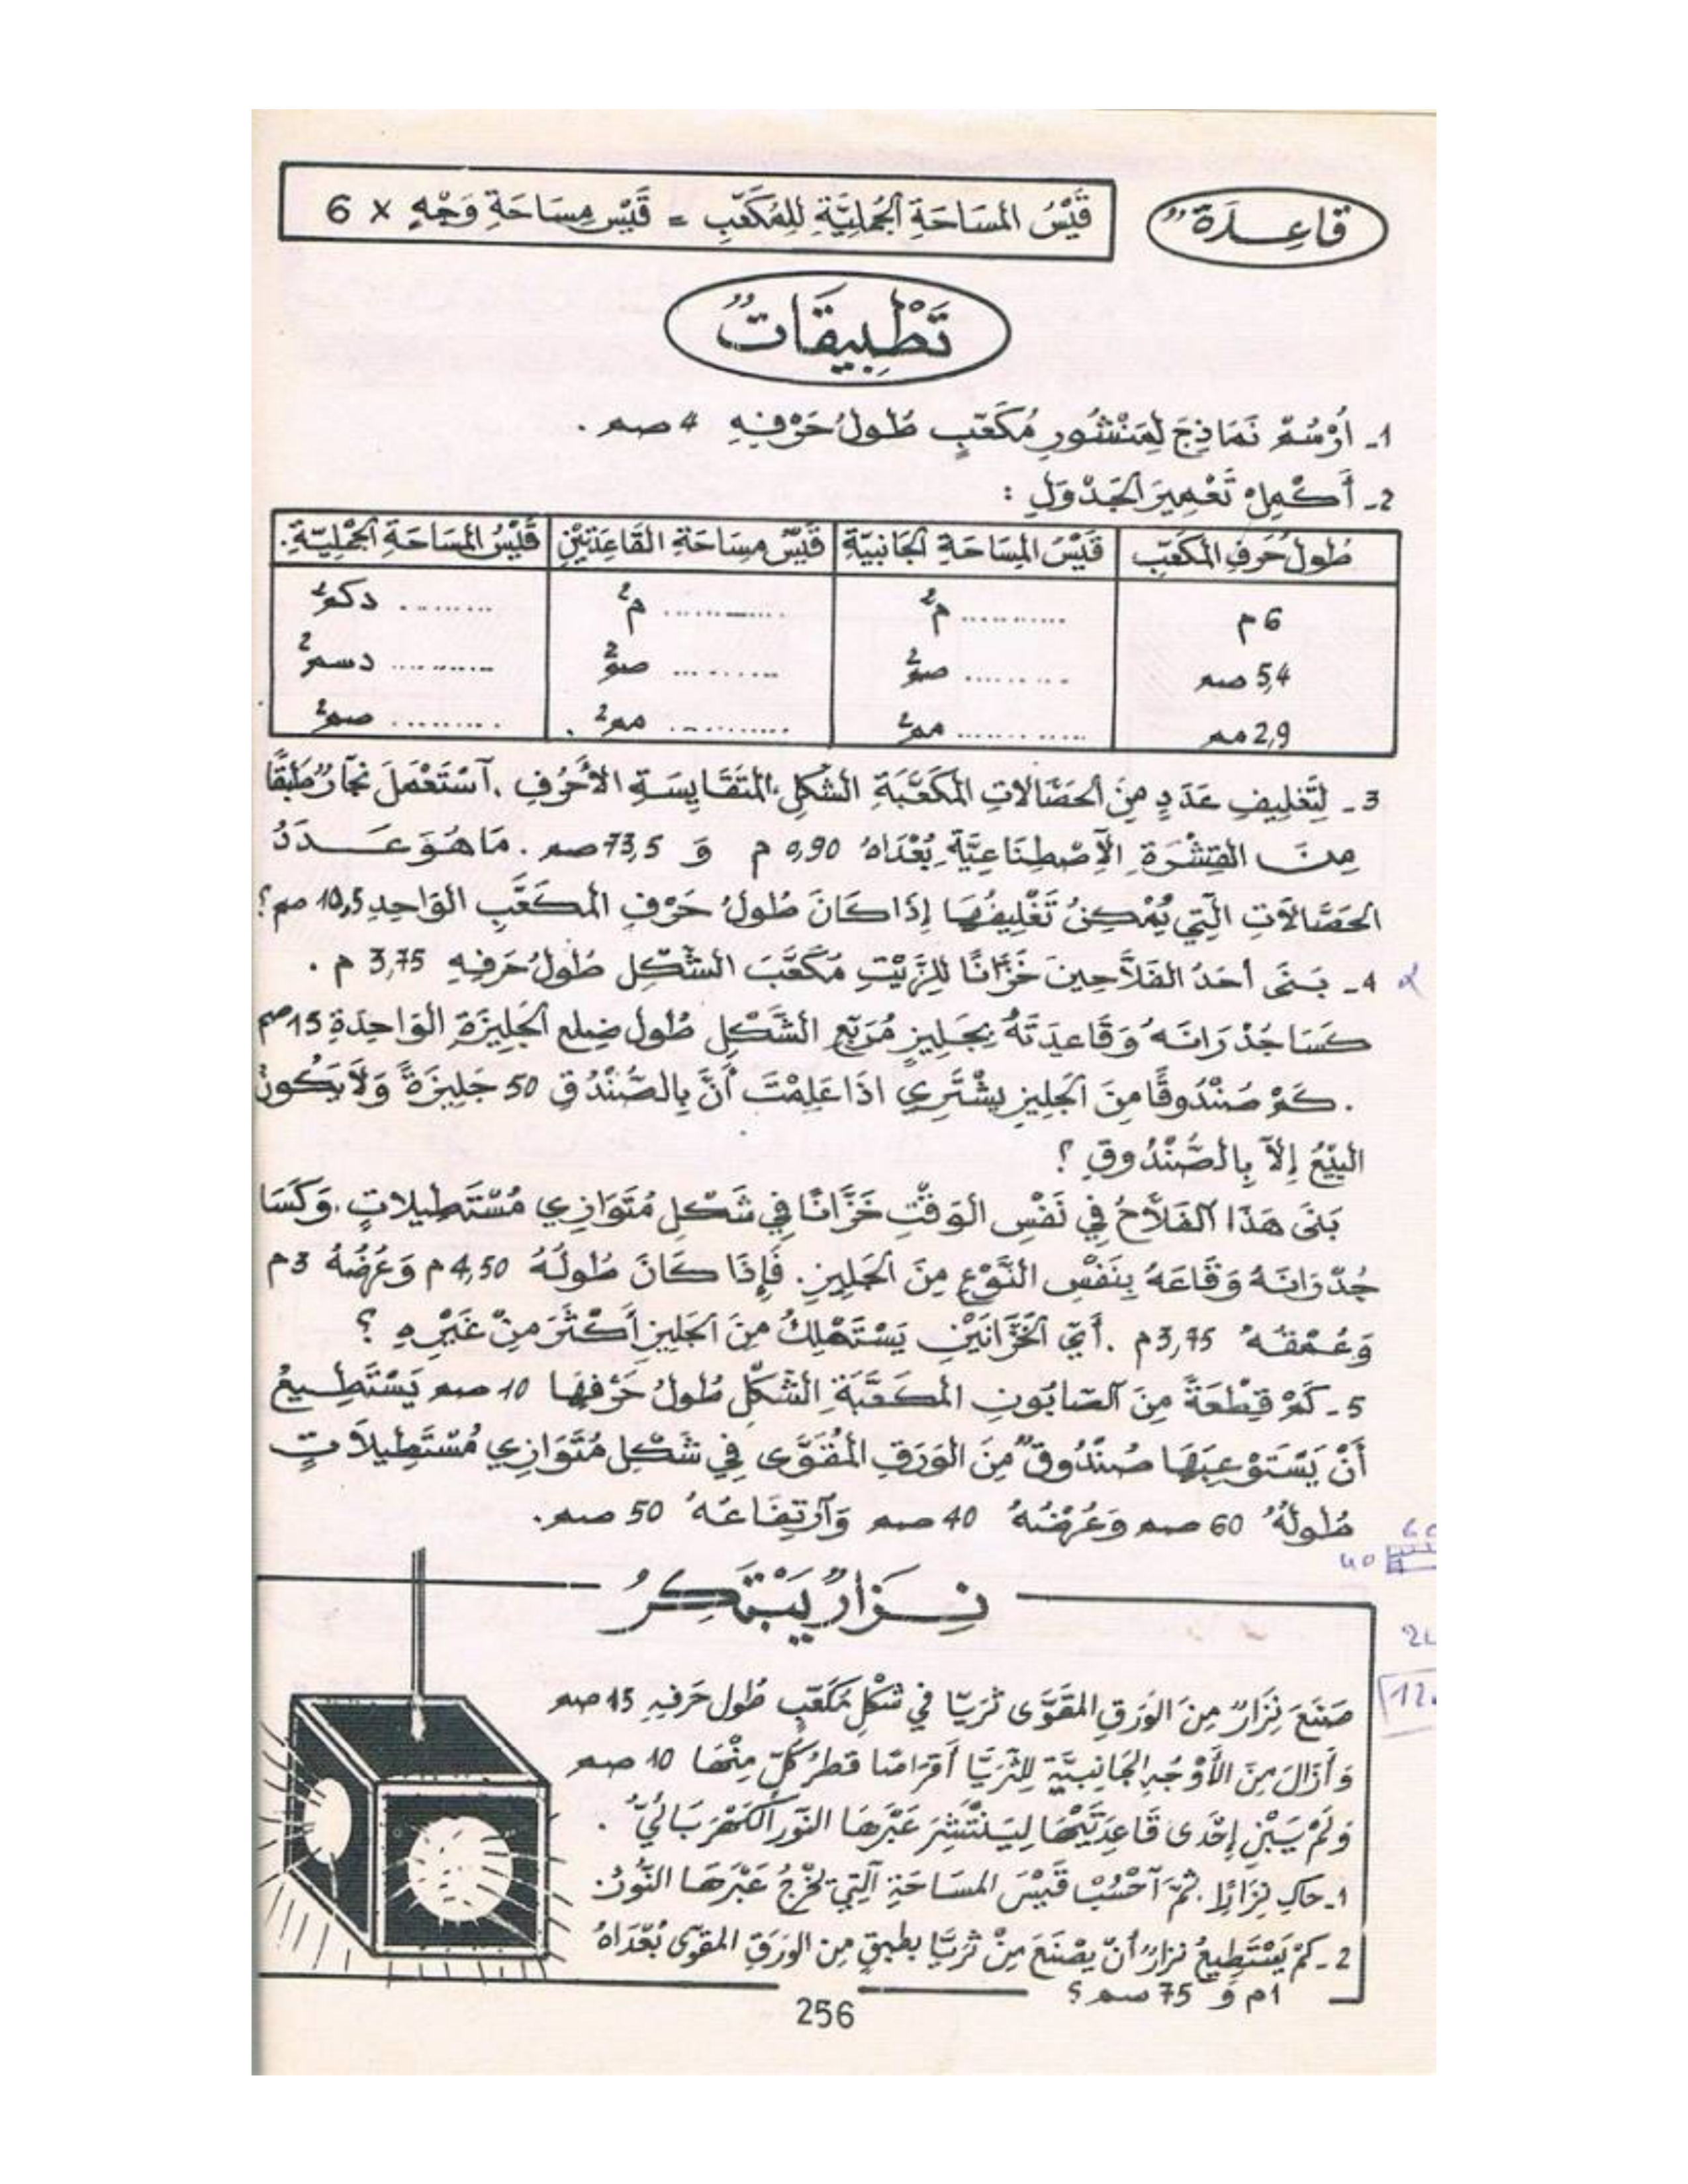 قَاعِـدَةٌ
قَيْسُ المسَاحَةِ الجُمليَّةِ لِلمُكَعَّبِ = قَيْس مِسَاحَةِ وَجْهٍ × 6
تَطْبِيقَاتٌ
1- اُرْسُمْ نَمَاذِجَ لِمَنْشُورٍ مُكَعَّبٍ طُولُ حَرْفِهِ 4 صم .
2- أَكْمِلْ تَعْمِيرَ الجَدْوَلِ :
طُولُ حَرفِ المكَعّبِ | قَيْسُ المِسَاحَةِ الجَانبيّة | قَيْسُ مِسَاحَةِ القَاعِدَتَيْنِ | قَيْسُ المسَاحَةِ الجُمْلِيّةِ.
6 م | ........... م² | ........... م² | ......... دكم²
5,4 صم | ......... صم² | ......... صم² | ......... دسم²
2,9 مم | ........... مم² | ........... مم² . | ......... صم²
3 - لِتَغلِيفِ عَدَدٍ مِنَ الحَصَّالاتِ المُكَعَّبَةِ الشَّكْلِ، المتَقَايِسَةِ الأَحْرُفِ ، اَسْتَعْمَلَ نجَّارٌ طَبَقًا
مِنَ القِشْرَةِ الاِصْطِنَاعِيَّةِ بُعْدَاهُ 0,90 م وَ 73,5 صم . مَا هُوَ عَـدَدُ
الحَصَّالاَتِ الّتِي يُمْكِنُ تَغْلِيفُهَا إِذَا كَانَ طُولُ حَرْفِ المكَعَّبِ الوَاحِدِ 10,5 صم ؟
4 - بَنَى أحَدُ الفَلاَّحِينَ خَزَّانًا لِلزَّيْتِ مُكَعَّبَ الشَّكْلِ طُولُ حَرفِهِ 3,75 م .
كَسَا جُدْرَانَهُ وَقَاعِدَتَهُ بِجَلِيزٍ مُرَبَّعِ الشَّكْلِ طُول ضِلعِ الجَلِيزَةِ الوَاحِدَةِ 15 صم
. كَمْ صُنْدُوقًا مِنَ الجَلِيزِ يشْتَرِي اذَا عَلِمْتَ أَنَّ بِالصُّنْدُوقِ 50 جَلِيزَةً وَلاَ يَكُونُ
البَيْعُ إِلاَّ بِالصُّنْدُوقِ ؟
بَنَى هَذَا الفَلاَّحُ فِي نَفْسِ الوَقْتِ خَزَّانًا فِي شَكْلِ مُتَوَازِي مُسْتَطِيلاتٍ . وَكَسَا
جُدْرَانَهُ وَقَاعَهُ بِنَفْسِ النَّوْعِ مِنَ الجَلِيزِ. فَإِذَا كَانَ طُولُهُ 4,50 م وَعُرْضُهُ 3 م
وَعُمْقُهُ 3,75 م . أَيّ الخَزَّانَيْنِ يَسْتَهْلِكُ مِنَ الجَلِيزِ أَكْثَرَ مِنْ غَيْرِهِ ؟
5 - كَمْ قِطْعَةً مِنَ الصَّابُونِ المكَعَّبَةِ الشَّكْلِ طُولُ حَرْفِهَا 10 صم يَسْتَطِيعُ
أَنْ يَسْتَوْعِبَهَا صُنْدُوقٌ مِنَ الوَرَقِ المُقَوَّى فِي شَكْلِ مُتَوَازِي مُسْتَطِيلاَتٍ
طُولُهُ 60 صم وَعُرْضُهُ 40 صم وَاَرتِفَاعُهُ 50 صم.
40
نِـزَارٌ يَبْتَكِرُ
صَنَعَ نِزَارٌ مِنَ الوَرَقِ المقَوَّى ثُرَيّا فِي شَكْلِ مُكَعَّبٍ طُول حَرفِهِ 15 صم
وَأَزَالَ مِنَ الأَوْجُهِ الجَانِبِيَّةِ لِلثُّرَيَّا أَقرَاصًا قطرُ كُلٍّ مِنْهَا 10 صم
وَلَمْ يَبْنِ إِحْدَى قَاعِدَتَيْهَا لِيَنْتَشِرَ عَبْرَهَا النّورُ الكَهْرَبَائِيُّ .
1- حاكِ نِزَارًا . ثُمَّ اَحْسُبْ قَيْسَ المسَاحَةِ الَّتِي يَخْرُجُ عَبْرَهَا النُّورُ
2 - كمْ يَسْتَطِيعُ نزارٌ أنْ يصْنَعَ مِنْ ثُرَيَّا بطبقٍ مِن الورَقِ المقوّى بُعْدَاهُ
1م وَ 75 صم ؟
256